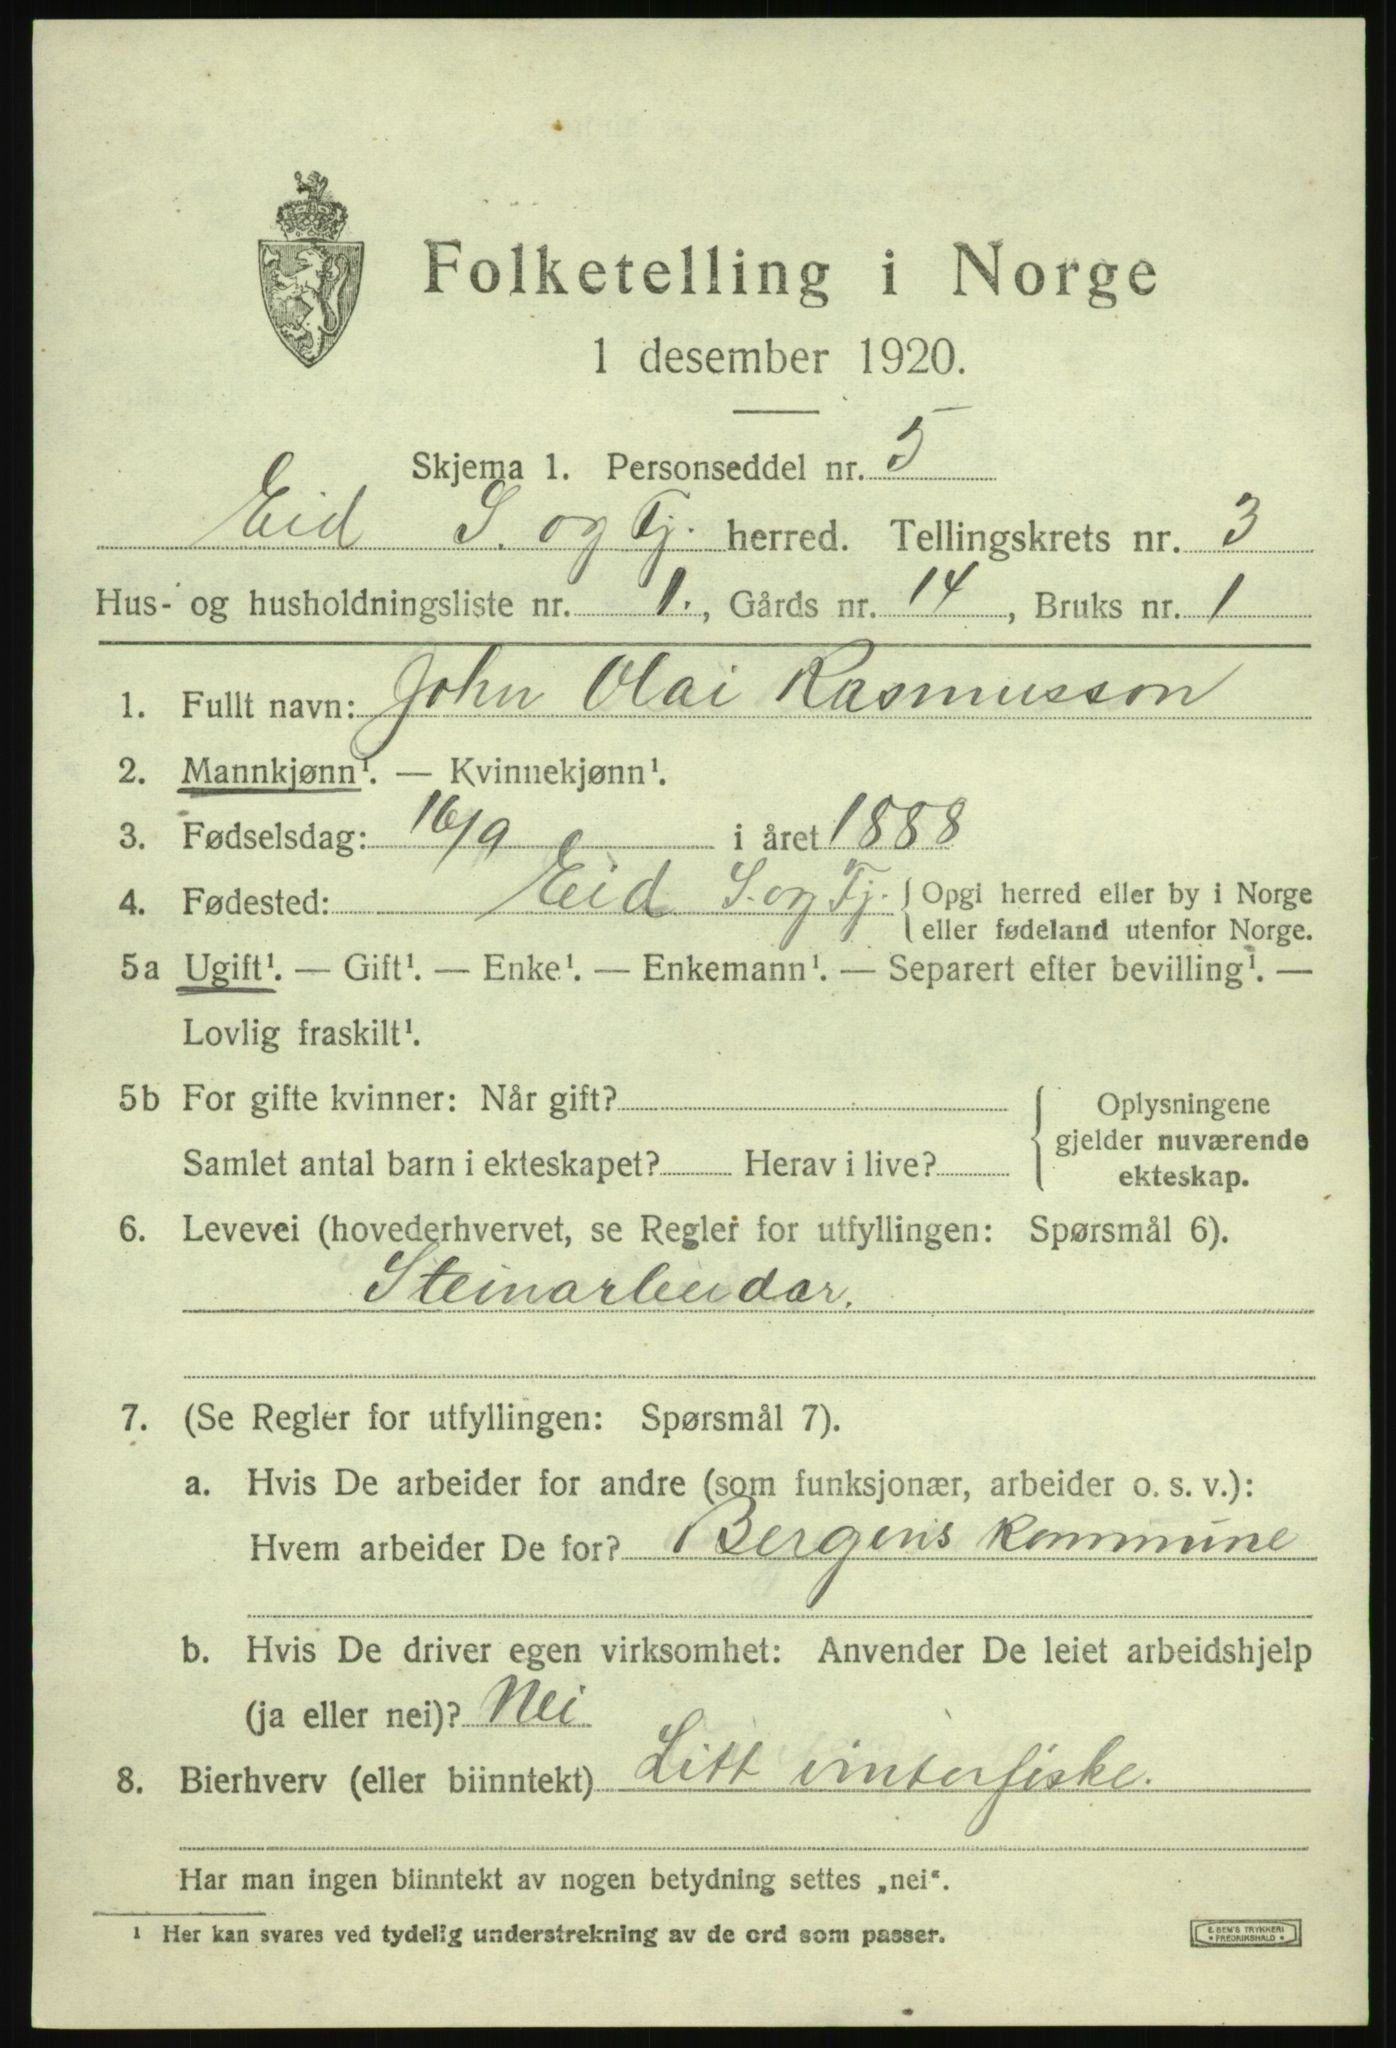 Folketelling i Norge
1 desember 1920.
Skjema 1. Personseddel nr. 5
Eid S. og Fj. herred. Tellingskrets nr. 3
Hus- og husholdningsliste nr. 1., Gårds nr. 14, Bruks nr. 1
1. Fullt navn: John Olai Rasmusson
2. Mannkjønn¹. — Kvinnekjønn¹.
3. Fødselsdag: 16/9 i året 1888
4. Fødested: Eid S. og Fj. { Opgi herred eller by i Norge
eller fødeland utenfor Norge.
5a Ugift¹. — Gift¹. — Enke¹. — Enkemann¹. — Separert efter bevilling¹. —
Lovlig fraskilt¹.
5b For gifte kvinner: Når gift? { Oplysningene
gjelder nuværende
Samlet antal barn i ekteskapet? Herav i live?
ekteskap.
6. Levevei (hovederhvervet, se Regler for utfyllingen: Spørsmål 6).
Steinarbeidar.
7. (Se Regler for utfyllingen: Spørsmål 7).
a. Hvis De arbeider for andre (som funksjonær, arbeider o. s. v.):
Hvem arbeider De for? Bergens kommune
b. Hvis De driver egen virksomhet: Anvender De leiet arbeidshjelp
(ja eller nei)? Nei
8. Bierhverv (eller biinntekt) Litt vinterfiske.
Har man ingen biinntekt av nogen betydning settes „nei“.
¹ Her kan svares ved tydelig understrekning av de ord som passer.
E. SEM'S TRYKKERI
* FREDRIKSHALD *